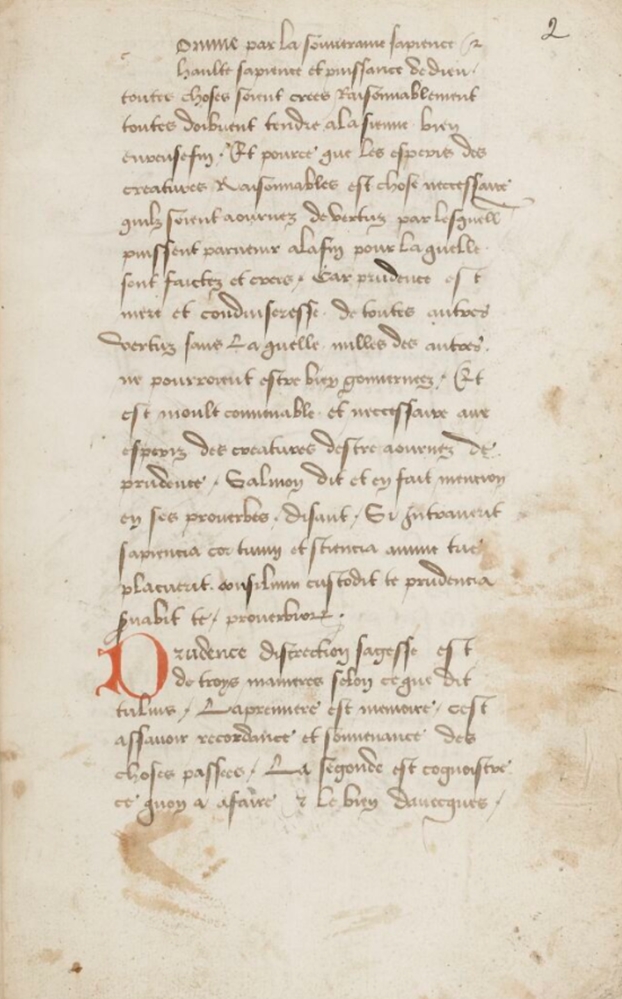 2
Omme par la souveraine sapience &
haulte sapience et puissance de dieu
toutes choses soient crees Raisonnablement
toutes doibuent tendre a la sienne bien
eureuse fin. Et pource que les esperis des
creatures Raisonnables est chose necessaire
quilz soient aournez de vertuz par lesquelz
puissent paruenir a la fin pour laquelle
sont faictez et crees. Car prudence est
mere et conduiseresse de toutes autres
vertuz sans Laquelle nulles des autres
ne pourroient estre bien gouuernez. Et
est moult conuenable et neccessaire aux
esperiz des creatures destre aournez de
prudence. Salmon dit et en fait mention
en ses prouerbes disant. Si Intrauerit
sapiencia cor tuum et sciencia anime tue
placuerit. consilium custodit te prudencia
seruabit te. prouerbiorum.
Prudence discrection sagesse est
de troys manieres selon ce que dit
tulius. La premiere est memoire cest
assauoir recordance et souuenance des
choses passees. La segonde est cognoistre
ce quon a afaire & le bien dauecques